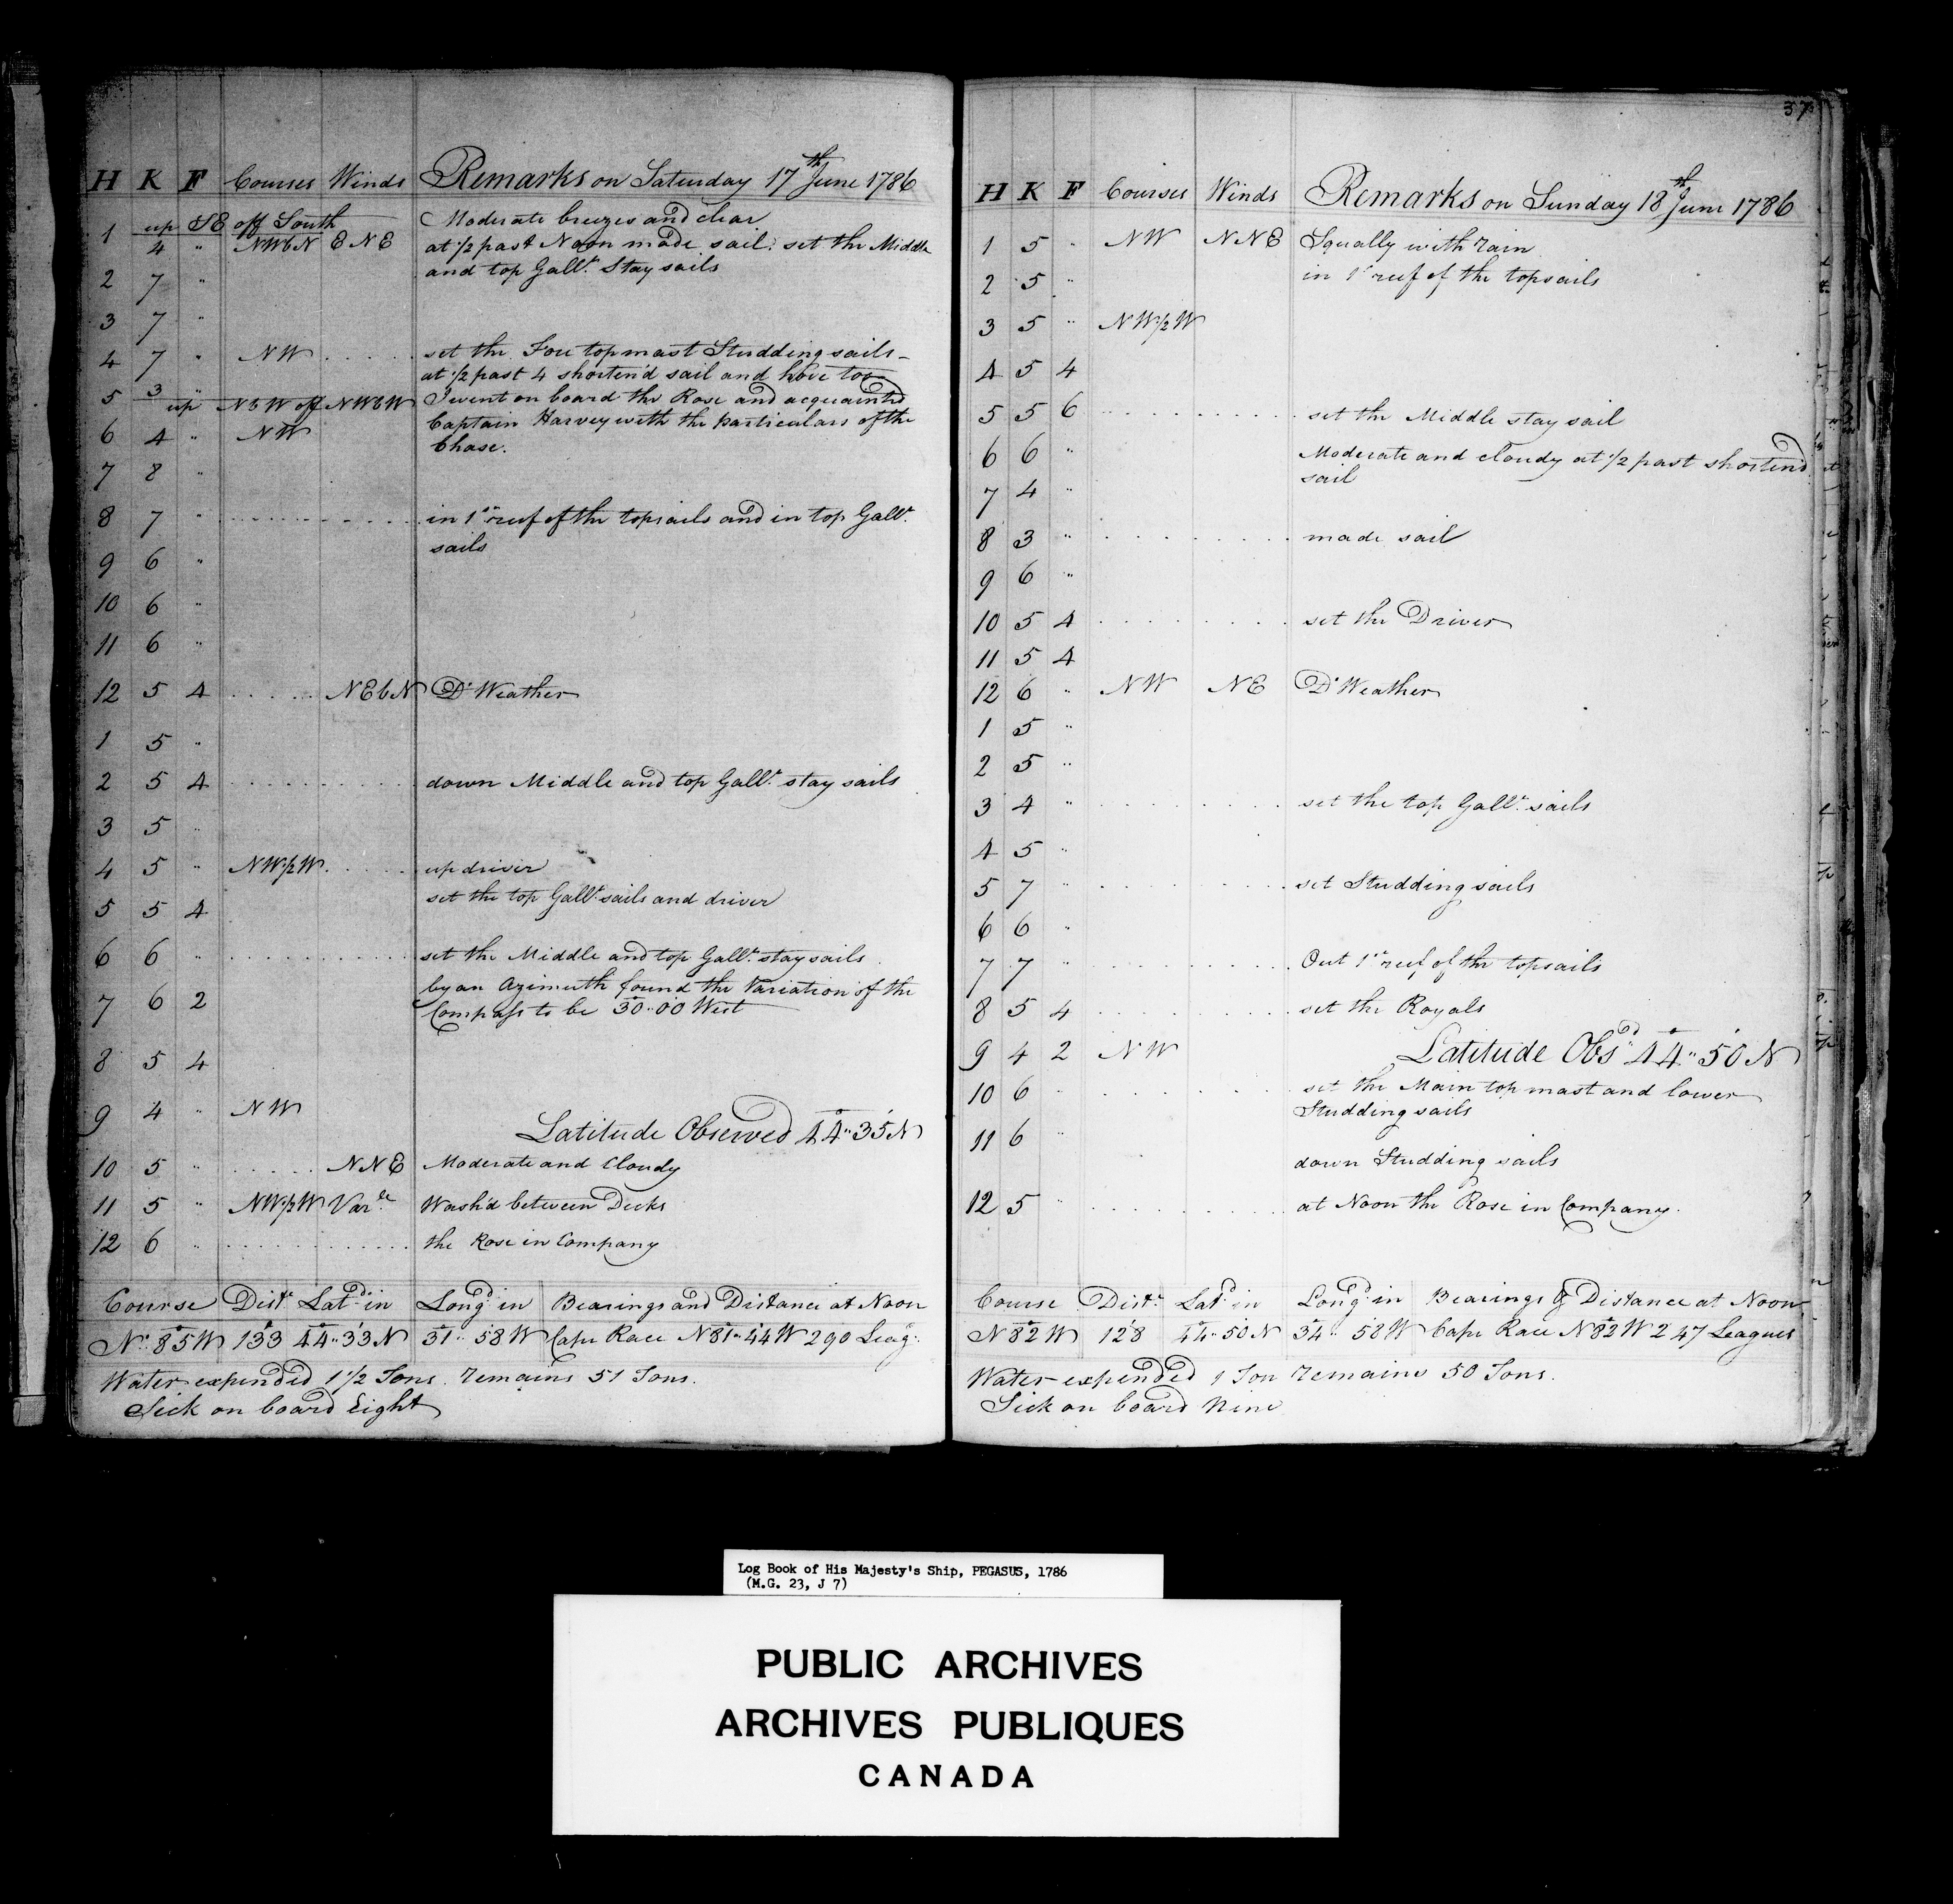 H K F Courses Winds Remarks on Saturday 17th June 1786
1 up SE off South Moderate breezes and clear
4 " NWbN ENE at ½ past Noon made sail: set the Middle
2 7 " and top Gallt. Stay sails
3 7 "
4 7 " NW ..... set the Fore topmast Studding sails
at ½ past 4 shorten'd sail and hove too
5 3 " up NbW off NWbW I went on board the Rose and acquainted
6 4 " NW Captain Harvey with the particulars of the
Chase.
7 8 "
8 7 " .......... in 1st reef of the topsails and in top Gallt.
sails
9 6 "
10 6 "
11 6 "
12 5 4 ..... NEbN Do. Weather
1 5 "
2 5 4 .......... down Middle and top Gallt. stay sails
3 5 "
4 5 " NW½W ..... up driver
5 5 4 set the top Gallt. sails and driver
6 6 " .......... set the Middle and top Gallt. stay sails
7 6 2 by an Azimuth found the Variation of the
Compass to be 30°.00 West
8 5 4
9 4 " NW
Latitude Observed 44°.35' N
10 5 " ..... NNE Moderate and Cloudy
11 5 " NW½W Varle. Wash'd between Decks
12 6 " .......... the Rose in Company
Course Distce. Latd. in Longd. in Bearings and Distance at Noon
No. 85°W 133 44°.33'N 31°.58'W Cape Race N81°.44'W 290 Leag.
Water expended 1½ Tons. Remains 51 Tons.
Sick on board Eight
37
H K F Courses Winds Remarks on Sunday 18th June 1786
1 5 " NW NNE Squally with rain
2 5 " in 1st reef of the topsails
3 5 " NW½W
4 5 4
5 5 6 .......... set the Middle stay sail
6 6 " Moderate and cloudy at ½ past shortend
sail
7 4 "
8 3 " .......... made sail
9 6 "
10 5 4 .......... set the Driver
11 5 4
12 6 " NW NE Do. Weather
1 5 "
2 5 "
3 4 " .......... set the top Gallt. sails
4 5 "
5 7 " .......... set Studding sails
6 6 "
7 7 " .......... Out 1st reef of the topsails
8 5 4 .......... set the Royals
9 4 2 NW Latitude Obsd. 44°.50' N
10 6 " .......... set the Main top mast and lower
Studding sails
11 6 "
down Studding sails
12 5 " .......... at Noon the Rose in Company.
Course Distce. Latd. in Longd. in Bearings & Distance at Noon
N82°W 128 44°.50'N 34°.58'W Cape Race N82°W 247 Leagues
Water expended 1 Ton Remains 50 Tons.
Sick on board Nine
Log Book of His Majesty's Ship, PEGASUS, 1786
(M.G. 23, J 7)
PUBLIC ARCHIVES
ARCHIVES PUBLIQUES
CANADA